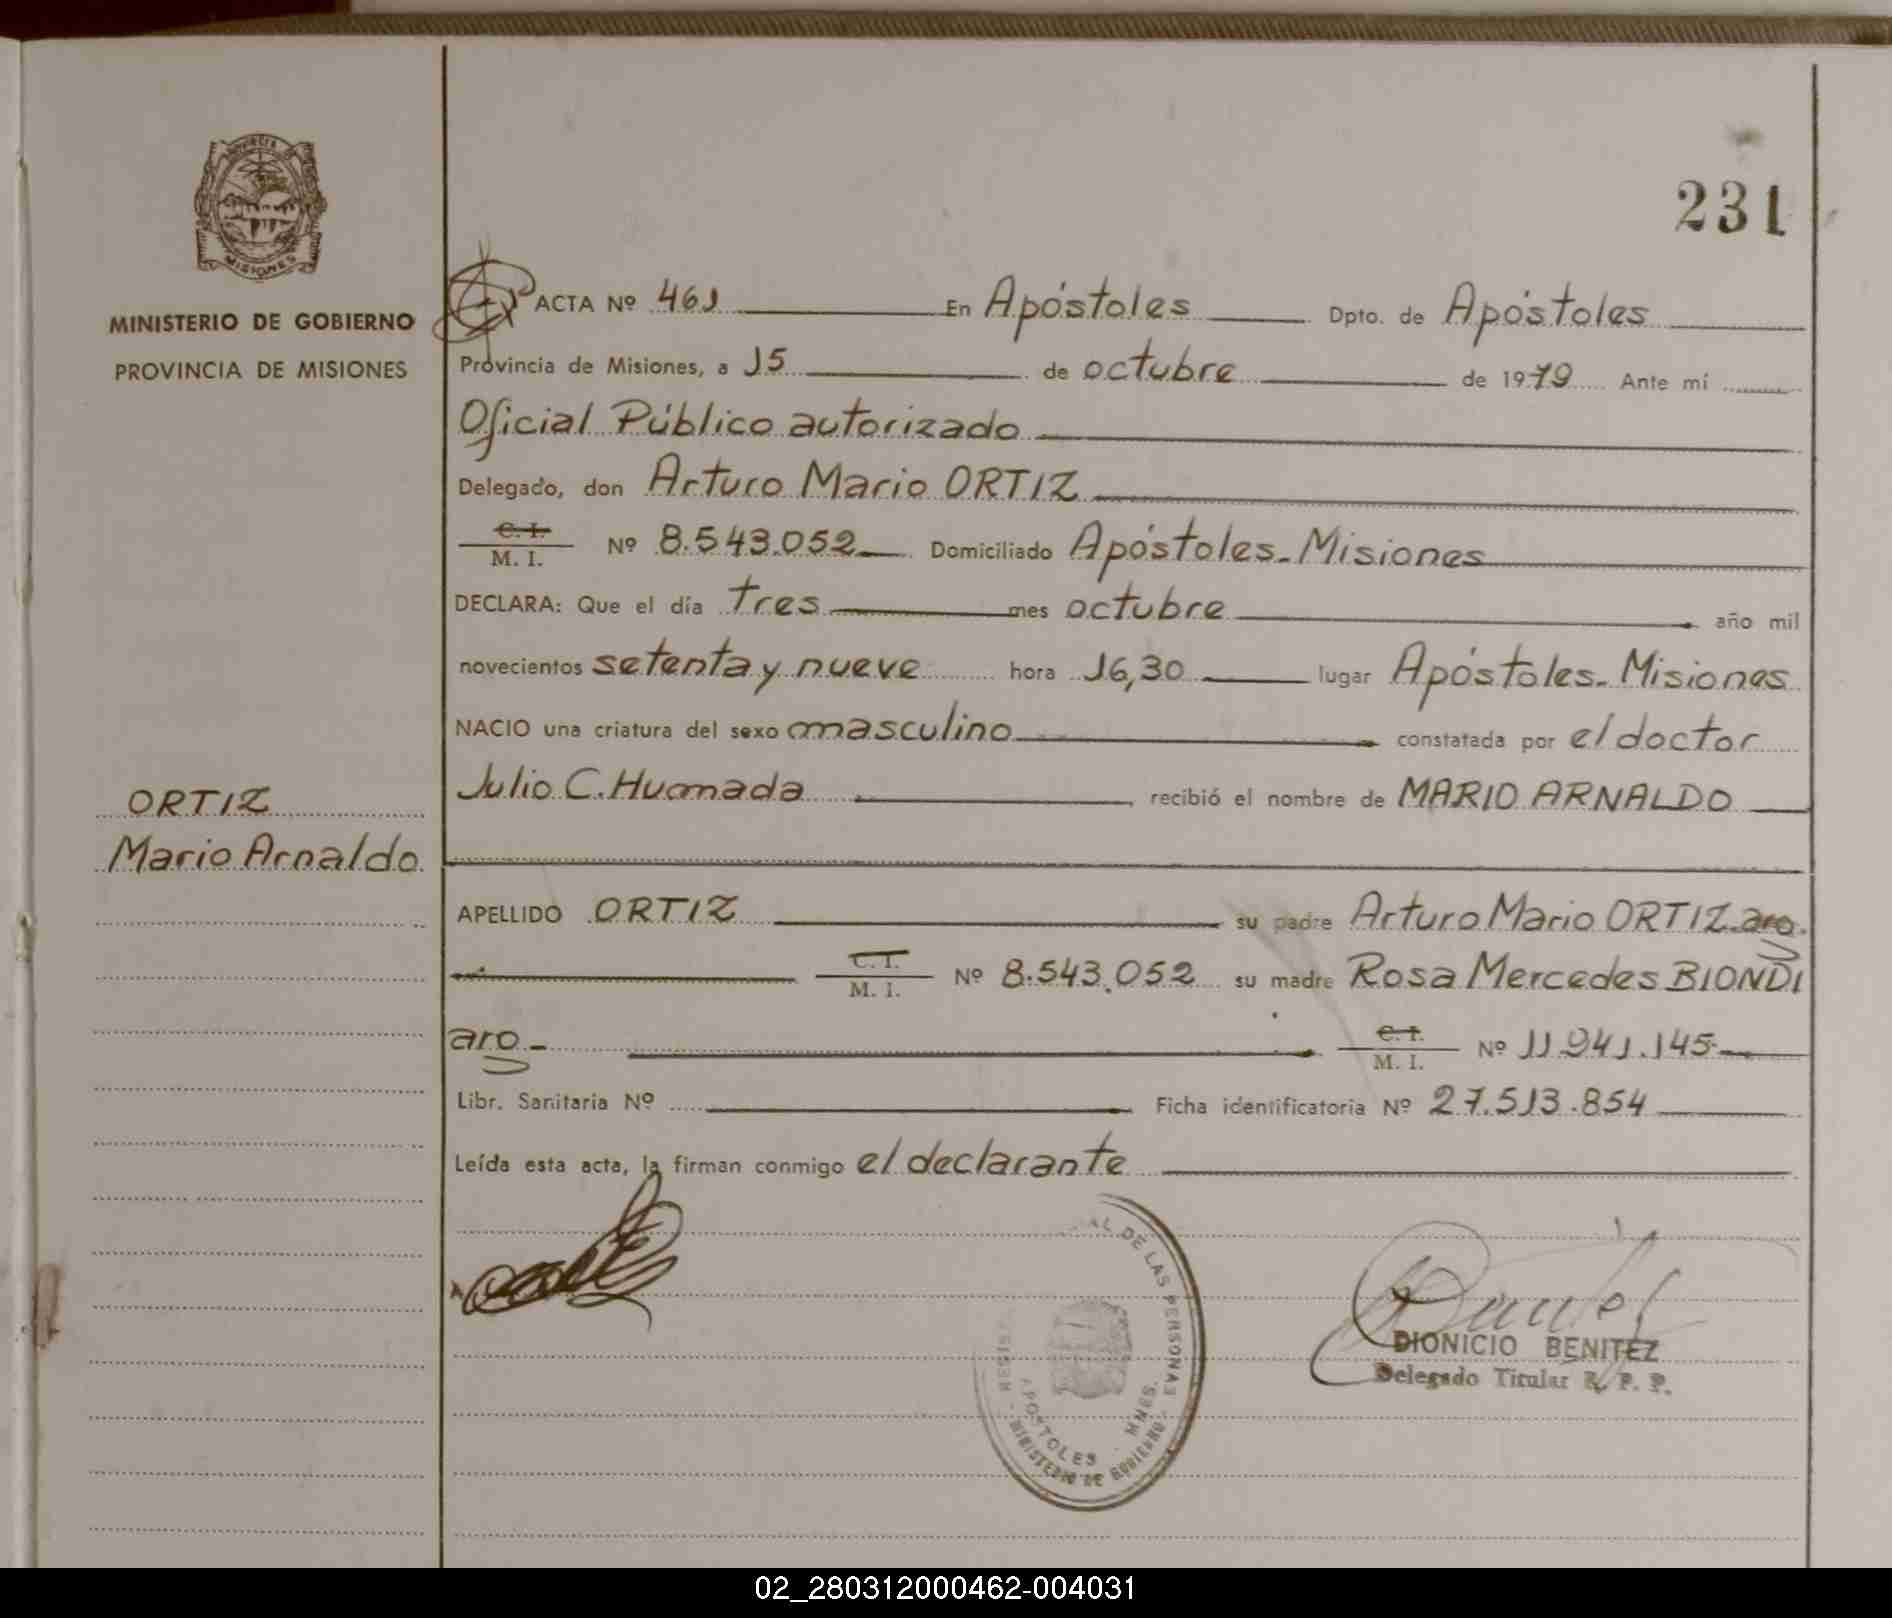 PROVINCIA DE
MISIONES
MINISTERIO DE GOBIERNO
PROVINCIA DE MISIONES
ORTIZ
Mario Arnaldo.
231
ACTA Nº 461 En Apóstoles Dpto. de Apóstoles
Provincia de Misiones, a 15 de octubre de 1979 Ante mí
Oficial Público autorizado
Delegado, don Arturo Mario ORTIZ
C. I.
M. I. Nº 8.543.052 Domiciliado Apóstoles-Misiones
DECLARA: Que el día tres mes octubre año mil
novecientos setenta y nueve hora 16,30 lugar Apóstoles-Misiones
NACIO una criatura del sexo masculino constatada por el doctor
Julio C. Humada recibió el nombre de MARIO ARNALDO
APELLIDO ORTIZ su padre Arturo Mario ORTIZ-arg.
C. I.
M. I. Nº 8.543.052 su madre Rosa Mercedes BIONDI
arg - C. I.
M. I. Nº 11.941.145
Libr. Sanitaria Nº Ficha identificatoria Nº 27.513.854
Leída esta acta, la firman conmigo el declarante
AL DE LAS PERSONAS
REGIST
APOSTOLES - MNES.
MINISTERIO DE GOBIERNO
DIONICIO BENITEZ
Delegado Titular R. P. P.
02_280312000462-004031